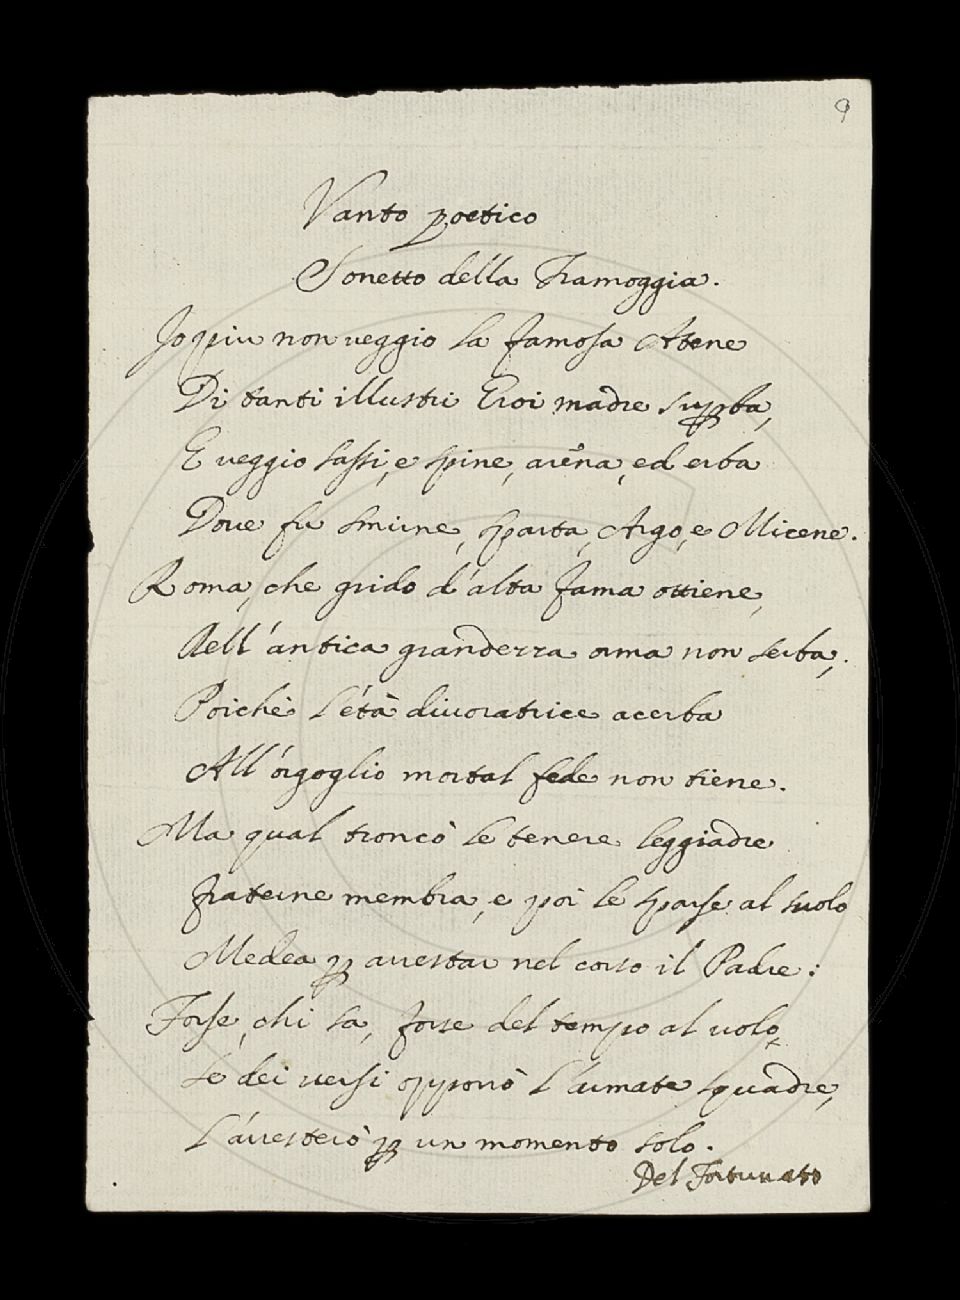 9
Vanto poetico
Sonetto della Tramoggia.
Io piu non veggio la famosa Atene
Di tanti illustri Eroi madre suꝑba,
E veggio sassi, e spine, arena, ed erba
Dove fu Smirne, Sparta, Argo, e Micene.
Roma, che grido d'alta fama ottiene,
Dell'antica grandezza orma non serba,
Poichè l'età divoratrice acerba
All'orgoglio mortal fede non tiene.
Ma qual troncò le tenere leggiadre
fraterne membra, e poi le sparse al suolo
Medea ꝑ arrestar nel corso il Padre:
Forse, chi sa, forse del tempo al volo,
Se dei versi opponò l'armate squadre,
L'arresterò ꝑ un momento solo.
Del Fortunato